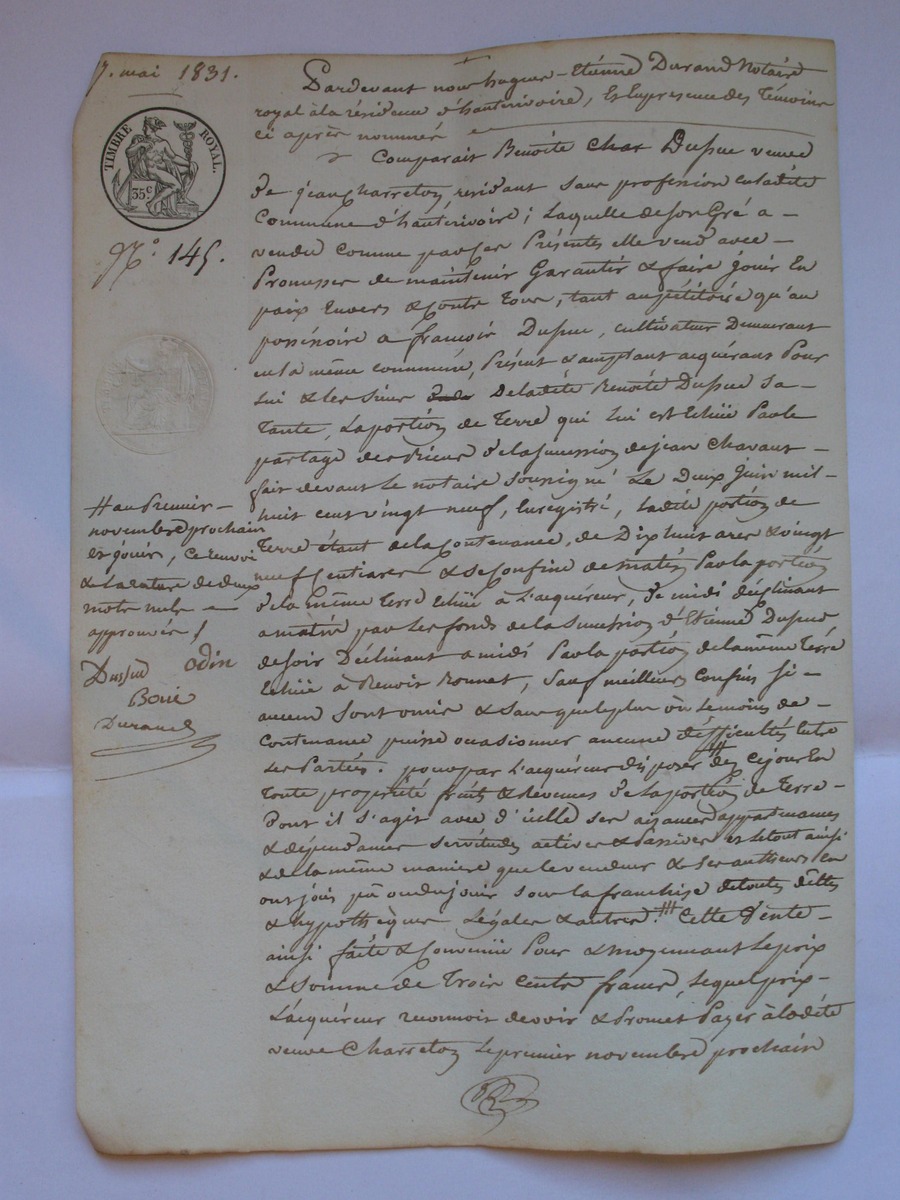 7. mai 1831.
TIMBRE ROYAL.
35 c
N.o 145.
Pardevant nous hugues-Etienne Durand Notaire
royal à la résidence d'hauterivoire, Et En presence des Témoins
ci après nommés
Comparait Benoite Char Dupuc veuve
de jean Charreton, résidant sans profession en ladite
Commune d'hauterivoire; Laquelle de son Gré a
vendu comme par ces Présentes elle vend avec
Promesses de maintenir Garantir & faire jouir En
paix Envers & Contre Tous, tant au pétitoire qu'au
possessoire a francois Dupuc, cultivateur Demeurant
en la même commune, Présent & acceptant acquérant Pour
Lui & les siens De ladite Benoite Dupuc sa
Tante, La portion de Terre qui lui est Echue Par le
partage des Biens de la succession de jean Chavant
fait devant Le notaire soussigné Le Deux juin mil
huit cent vingt neuf, Enregistré, ladite portion de
Terre étant de la Contenance, de Dix huit ares & vingt
neuf centiares & se Confine de matin Par la portion
de la même Terre Echue à L'acquéreur, De midi déclinant
a matin par les fonds de la succession d'Etienne Dupuc
de soir Déclinant a midi Par la portion de la même Terre
Echue à Benoit Ronnat, sauf meilleurs confins si
aucuns sont omis & sans que le plus ou Le moins de
Contenance puisse occasionner aucune difficultés Entre
Les Parties. pour par L'acquéreur disposer dès ce jour En
Toute propriété fruits & Revenus de La portion de Terre
Dont il s'agit avec d'icelle ses aisances appartenances
& dépendances servitudes actives & Passives et le tout ainsi
& de la même manière que le vendeur & ses autheurs en
ont joui pu ou du jouir sous la franchise de toutes dettes
& hypothèques Légales & autres. Cette Vente
ainsi faite & Convenue Pour & moyennant Le prix
& Somme de Trois Cents francs, Lequel prix
L'acquéreur reconnoit devoir & Promet Payer à ladite
veuve Charreton Le premier novembre prochain
# au Premier
novembre prochain
Ce renvoi
& La rature de deux
mots nuls
approuvés
Dussud odin
Boué
Durand